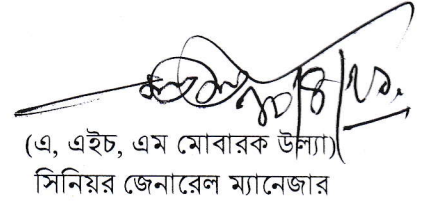 (এ, এইচ, এম মোবারক উল্যা)
সিনিয়র জেনারেল ম্যানেজার